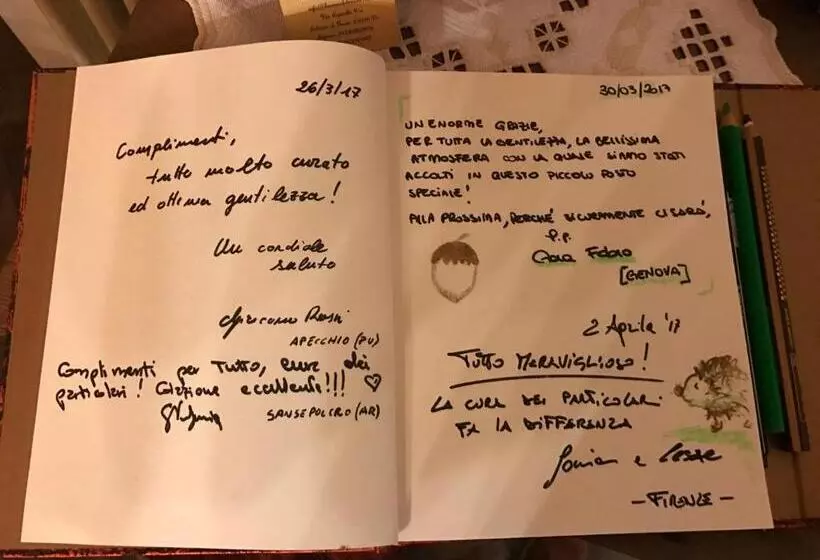 26/3/17
Complimenti,
tutto molto curato
ed ottima gentilezza!
Un cordiale
saluto
Giacomo Rossi
APECCHIO (PU)
Complimenti per TUTTO, cura dei
particolari! Colazione eccellente!!!
SANSEPOLCRO (AR)
30/03/2017
UN ENORME GRAZIE,
PER TUTTA LA GENTILEZZA, LA BELLISSIMA
ATMOSFERA CON LA QUALE SIAMO STATI
ACCOLTI IN QUESTO PICCOLO POSTO
SPECIALE!
ALLA PROSSIMA, PERCHÉ SICURAMENTE CI SARÀ,
[GENOVA]
2 Aprile '17
TUTTO MERAVIGLIOSO!
LA CURA DEI PARTICOLARI
FA LA DIFFERENZA
- FIRENZE -